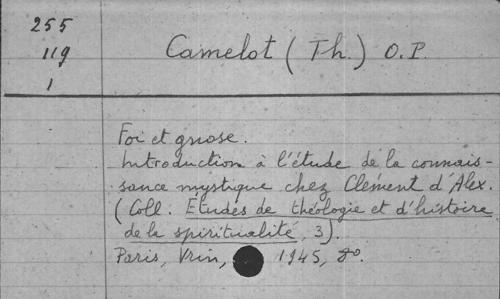 255
119
1
Camelot (Th.) O.P.
Foi et gnose.
Introduction à l'étude de la connais-
sance mystique chez Clément d'Alex.
(Coll. Études de théologie et d'histoire
de la spiritualité, 3).
Paris, Vrin, 1945, 8°.